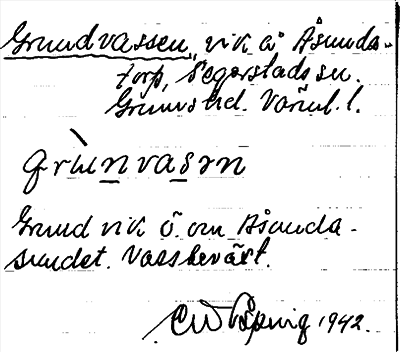 Grundvassen, vik å Åsunda-
torp, Segerstads sn.
Grums hd. Värml. l.
grùnvasɘn
Grund vik ö. om Åsunda-
sundet. Vassbeväxt.
1942.